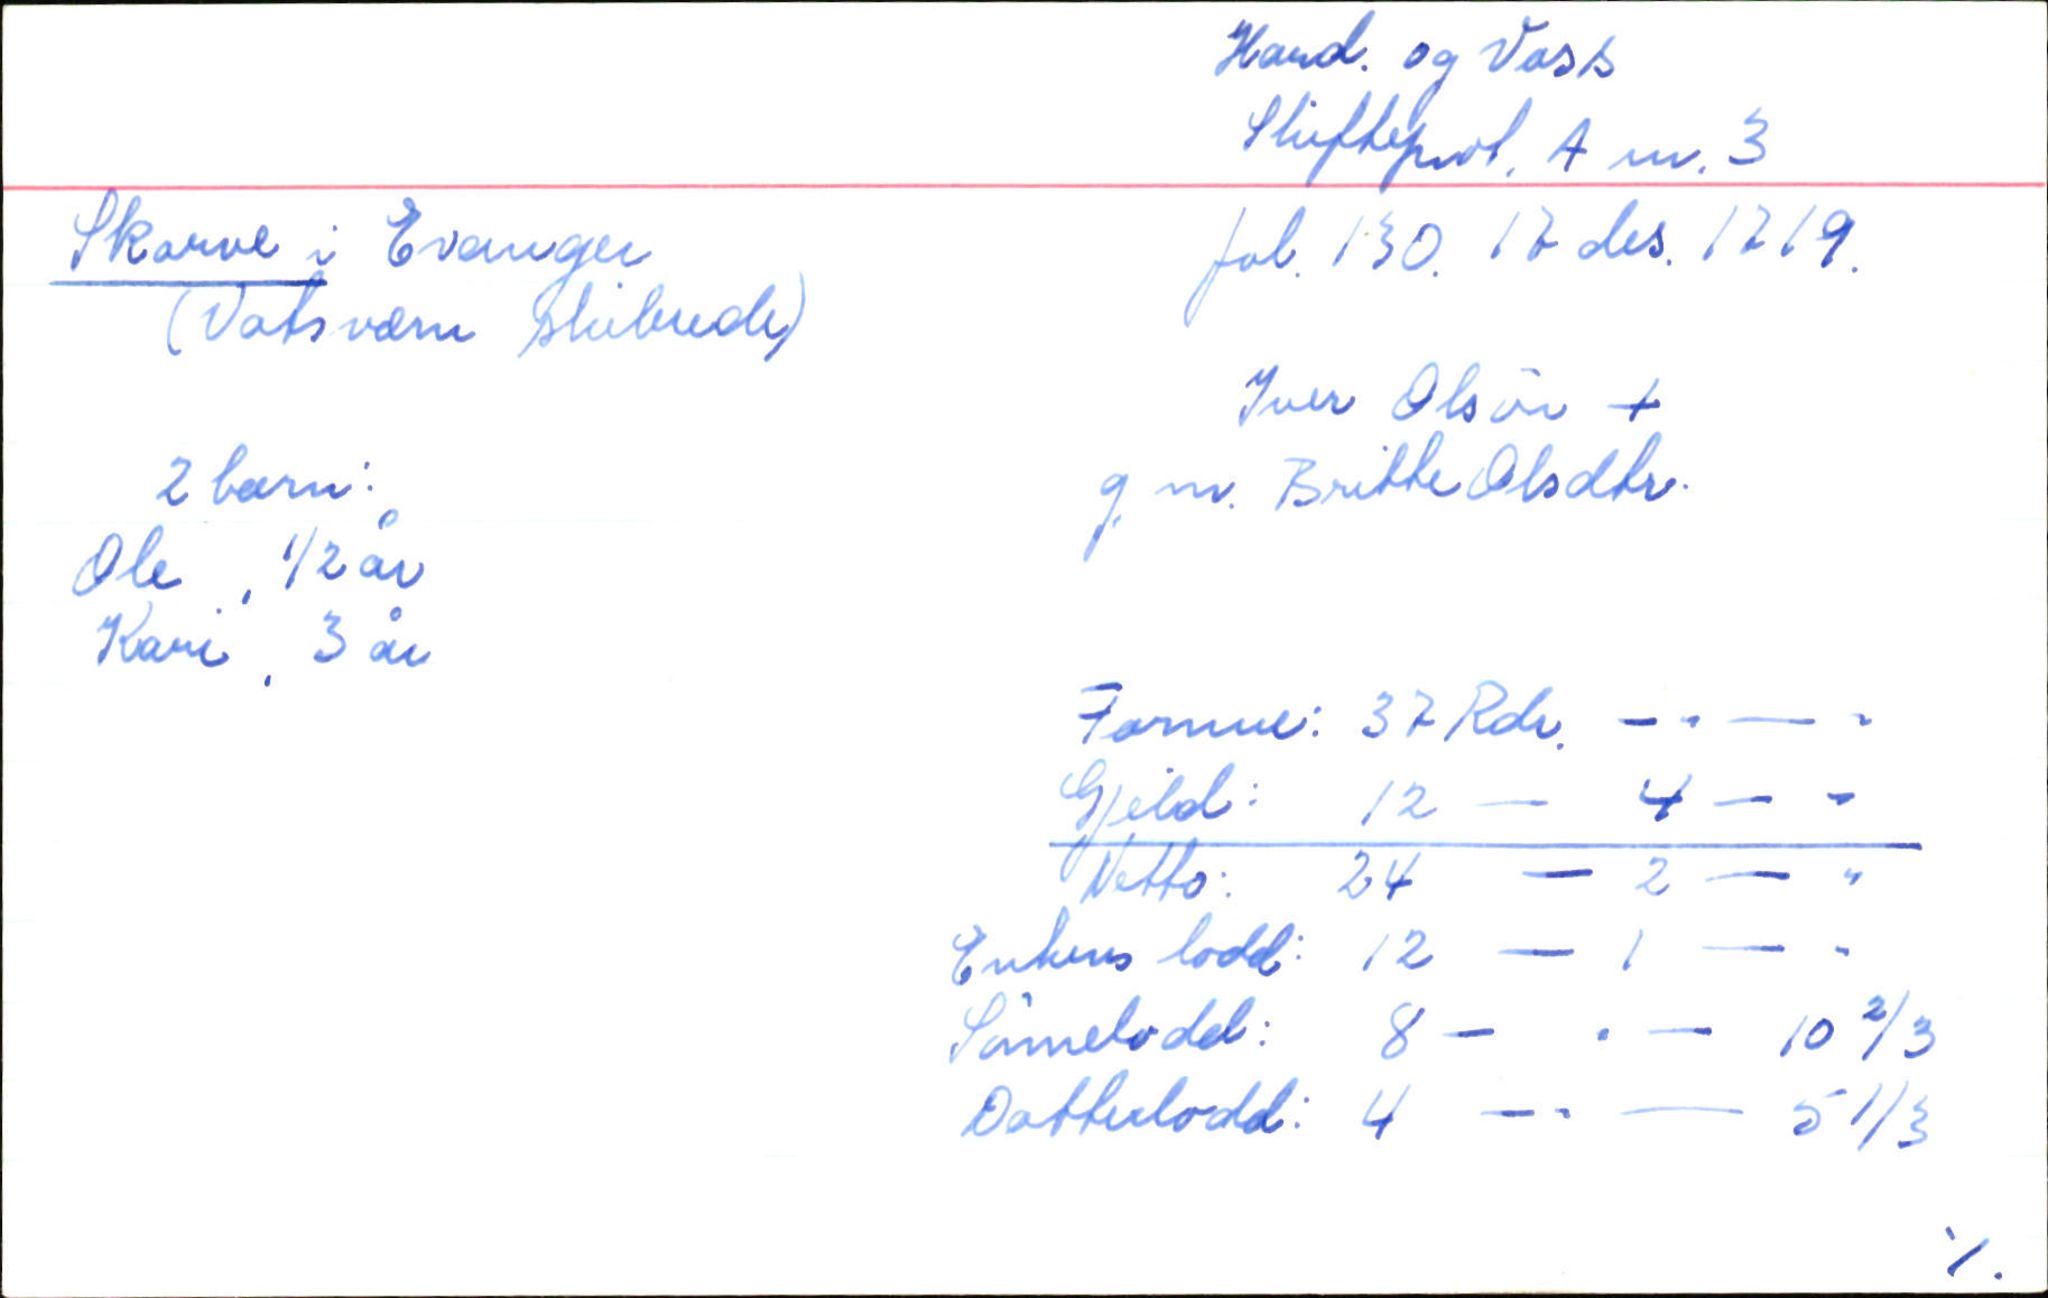 Hard. og Voss
Skifteprot. A nr. 3
Skorve i Evanger
fol. 130. 17 des. 1719.
(Vatsværn skibrede)
Iver Olsön +
g. m. Britte Olsdtr.
2 barn:
Ole, 1/2 år
Kari, 3 år
Formue: 37 Rdr. - " - "
Gjeld: 12 - 4 - "
Netto: 24 - 2 - "
Enkens lodd: 12 - 1 - "
Sönnelodd: 8 - " - 10 2/3
Datterlodd: 4 - " - 5 1/3
·/.